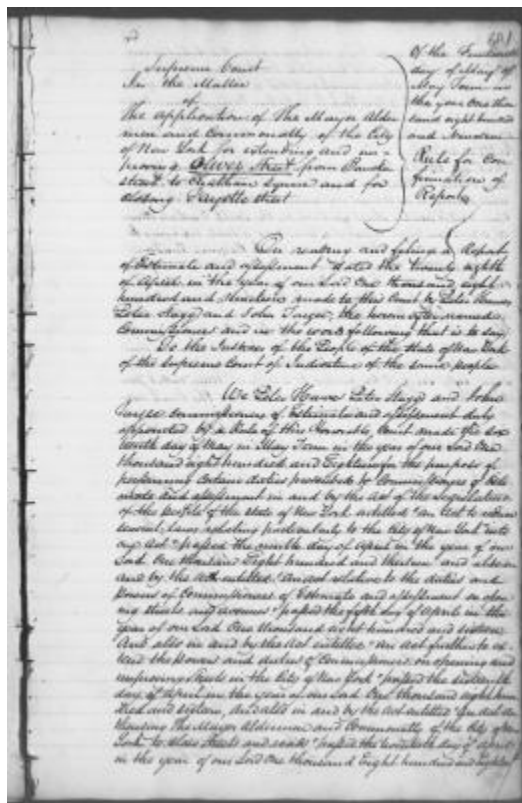 481
Supreme Court
In the Matter
of
The application of The Mayor Alder
men and Commonalty of the City
of New York for extending and im
proving Oliver Street from
street to Chatham Square and for
closing Fayette street
Of the
day of May of
May Term in
the year One thou
sand eight hundred
and Nineteen
Rule for Con
firmation of
Report
On reading and filing a Report
of Estimate and assessment dated the twenty eighth
of April in the year of our Lord One thousand eight
hundred and Nineteen made to this Court by Peter
Peter Stagg and John Targee, the herein after named
Commissioners and in the words following that is to say
To the Justices of the People of the State of New York
of the Supreme Court of Judicature of the same people
We Peter Peter Stagg and John
Targee Commissioners of Estimate and assessment duly
appointed by a Rule of this Honorable Court made the
day of May in May Term in the year of our Lord One
thousand eight hundred and Eighteen for the purpose of
performing certain duties prescribed to Commissioners of Esti
mate and assessment in and by the act of the Legislature
of the people of the state of New York entitled "an Act to reduce
several laws relating particularly to the City of New York into
one Act" passed the ninth day of April in the year of our
Lord One thousand Eight hundred and thirteen and also in
and by the Act entitled "An act relative to the duties and
powers of Commissioners of Estimate and assessment on open
ing streets and avenues" passed the fifth day of April in the
year of our Lord One thousand eight hundred and sixteen
And also in and by the Act entitled "An act further to ex
tend the powers and duties of Commissioners on opening and
improving streets in the City of New York" passed the
day of April in the year of our Lord One thousand eight hun
dred and sixteen, And also in and by the Act entitled "An act au
thorising The Mayor Aldermen and Commonalty of the City of New
York to close streets and roads" passed the twentieth day of April
in the year of our Lord One thousand Eight hundred and eighteen